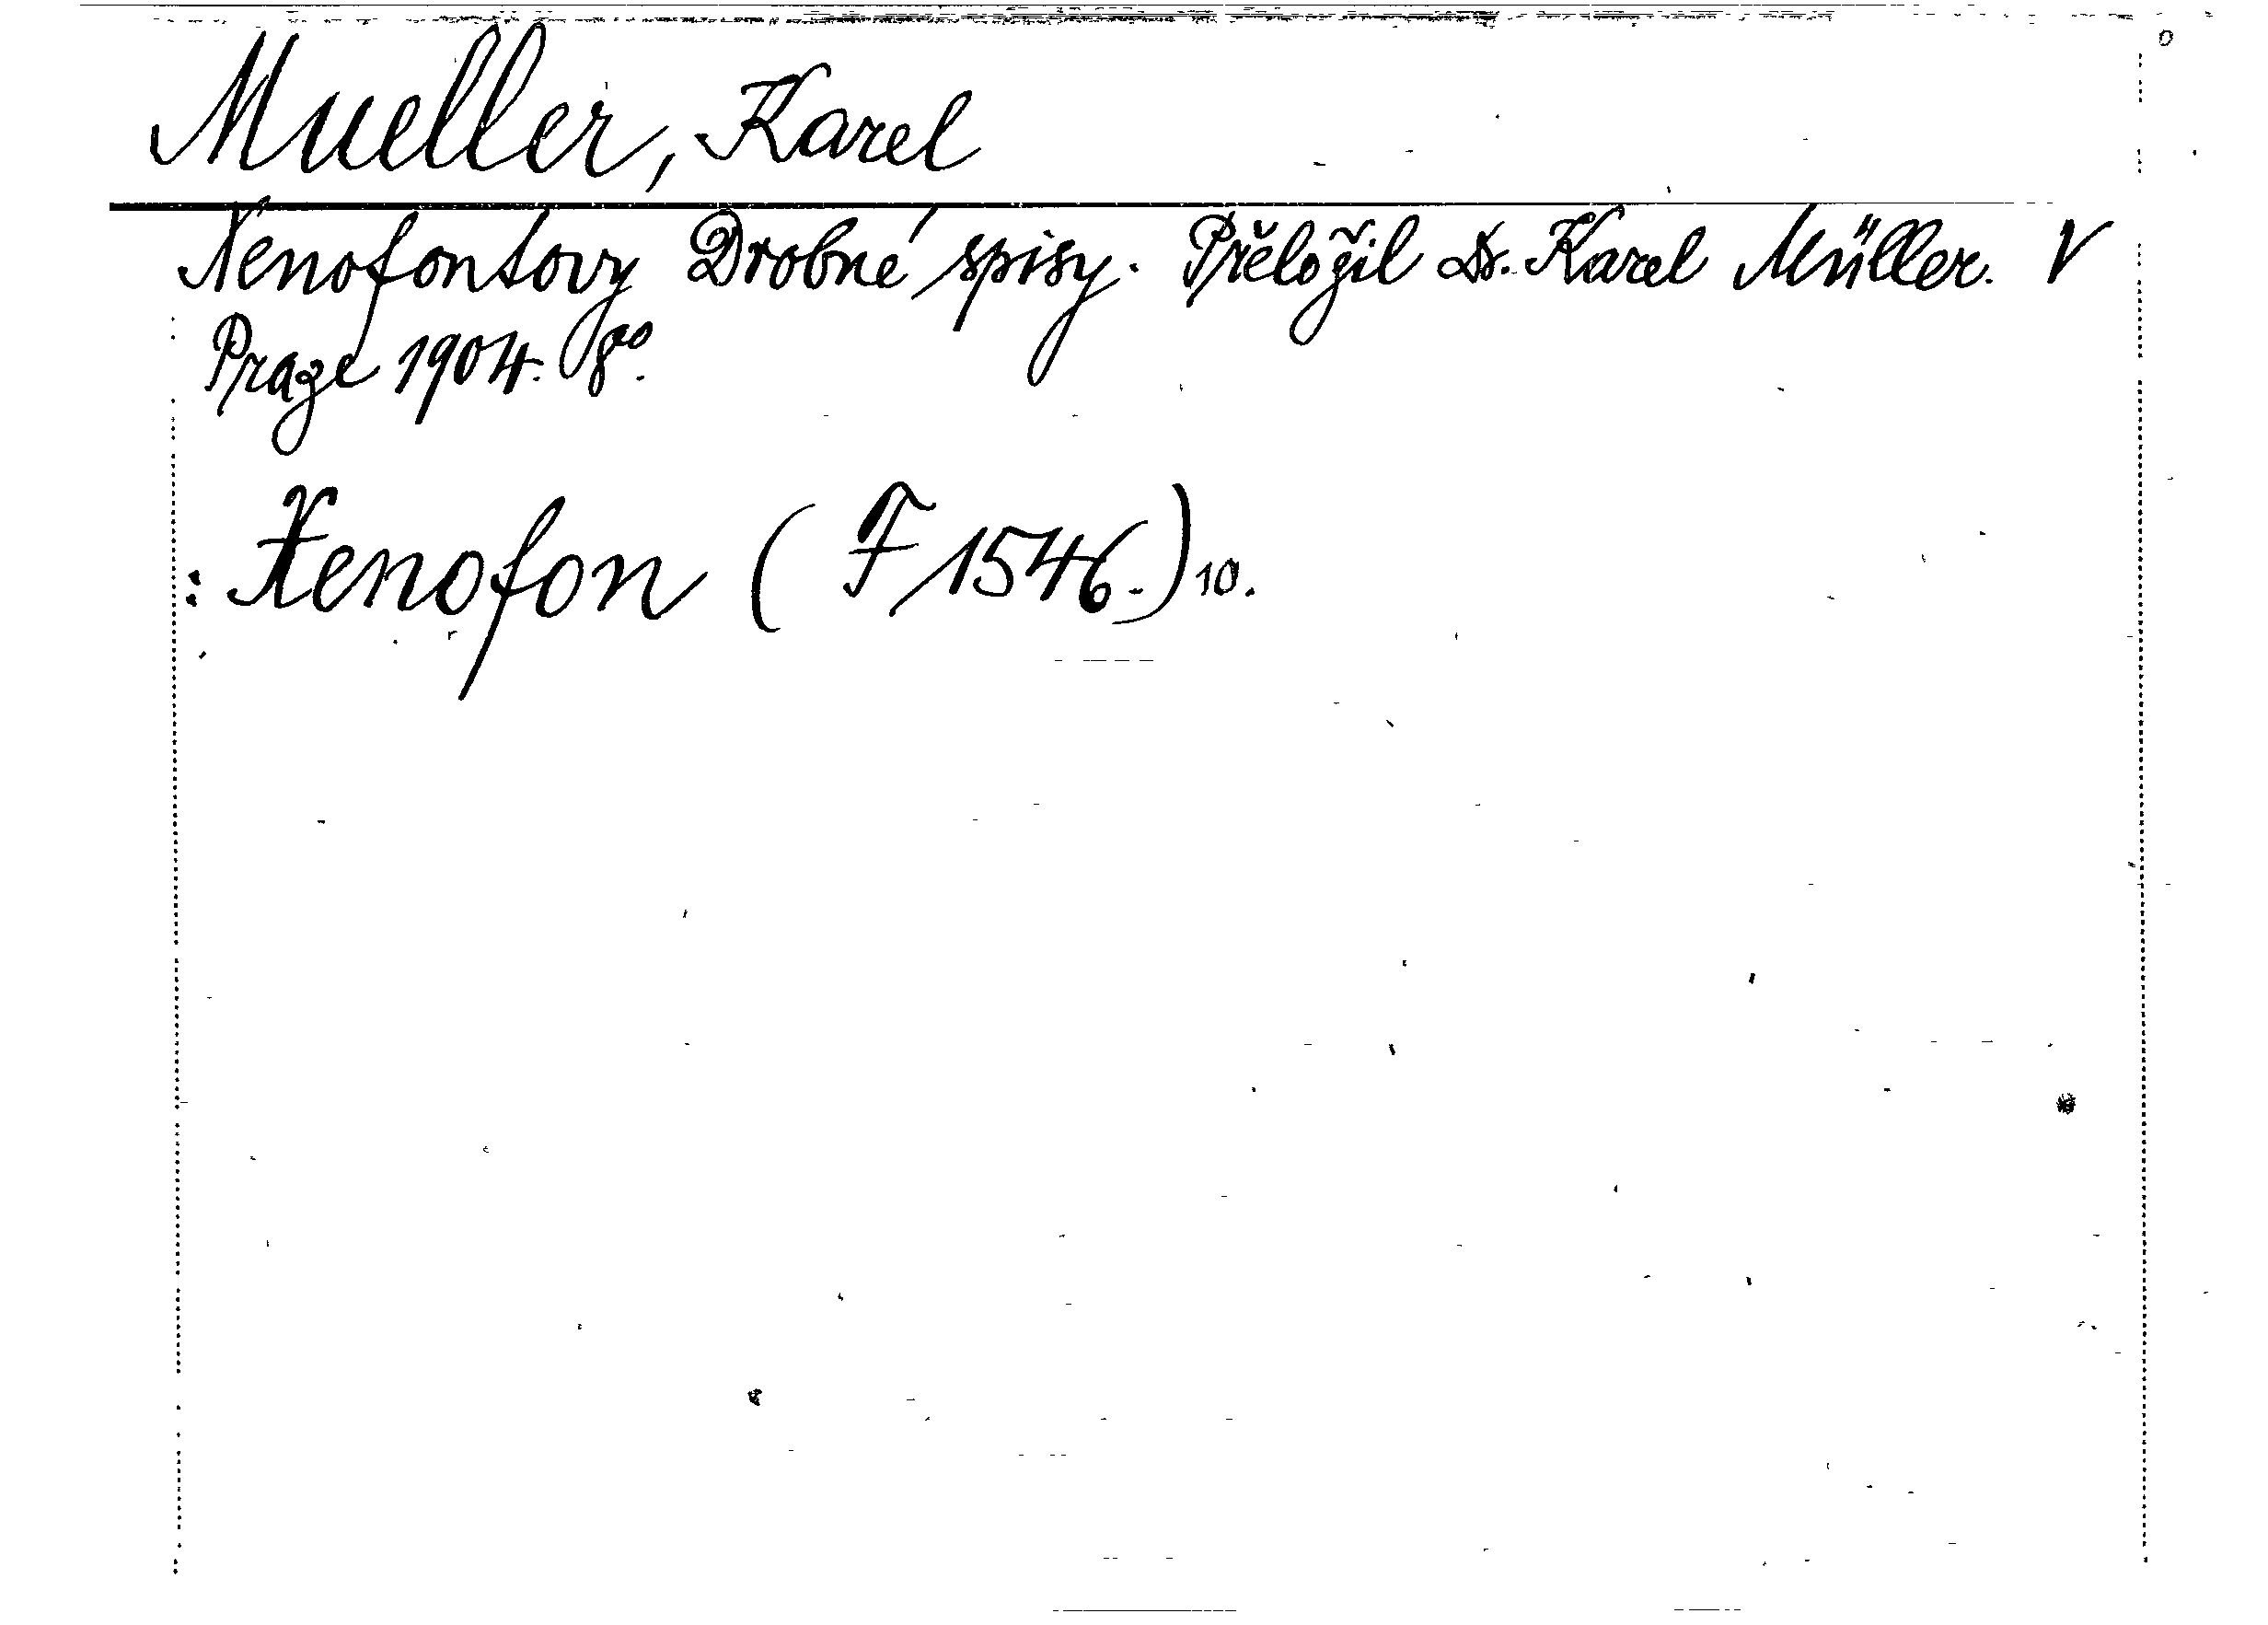 Mueller, Karel
Xenofontovy Drobné spisy. Přeložil Dr. Karel Müller. V
Praze 1904. 8º.
: Xenofon ( F 1546.) 10.